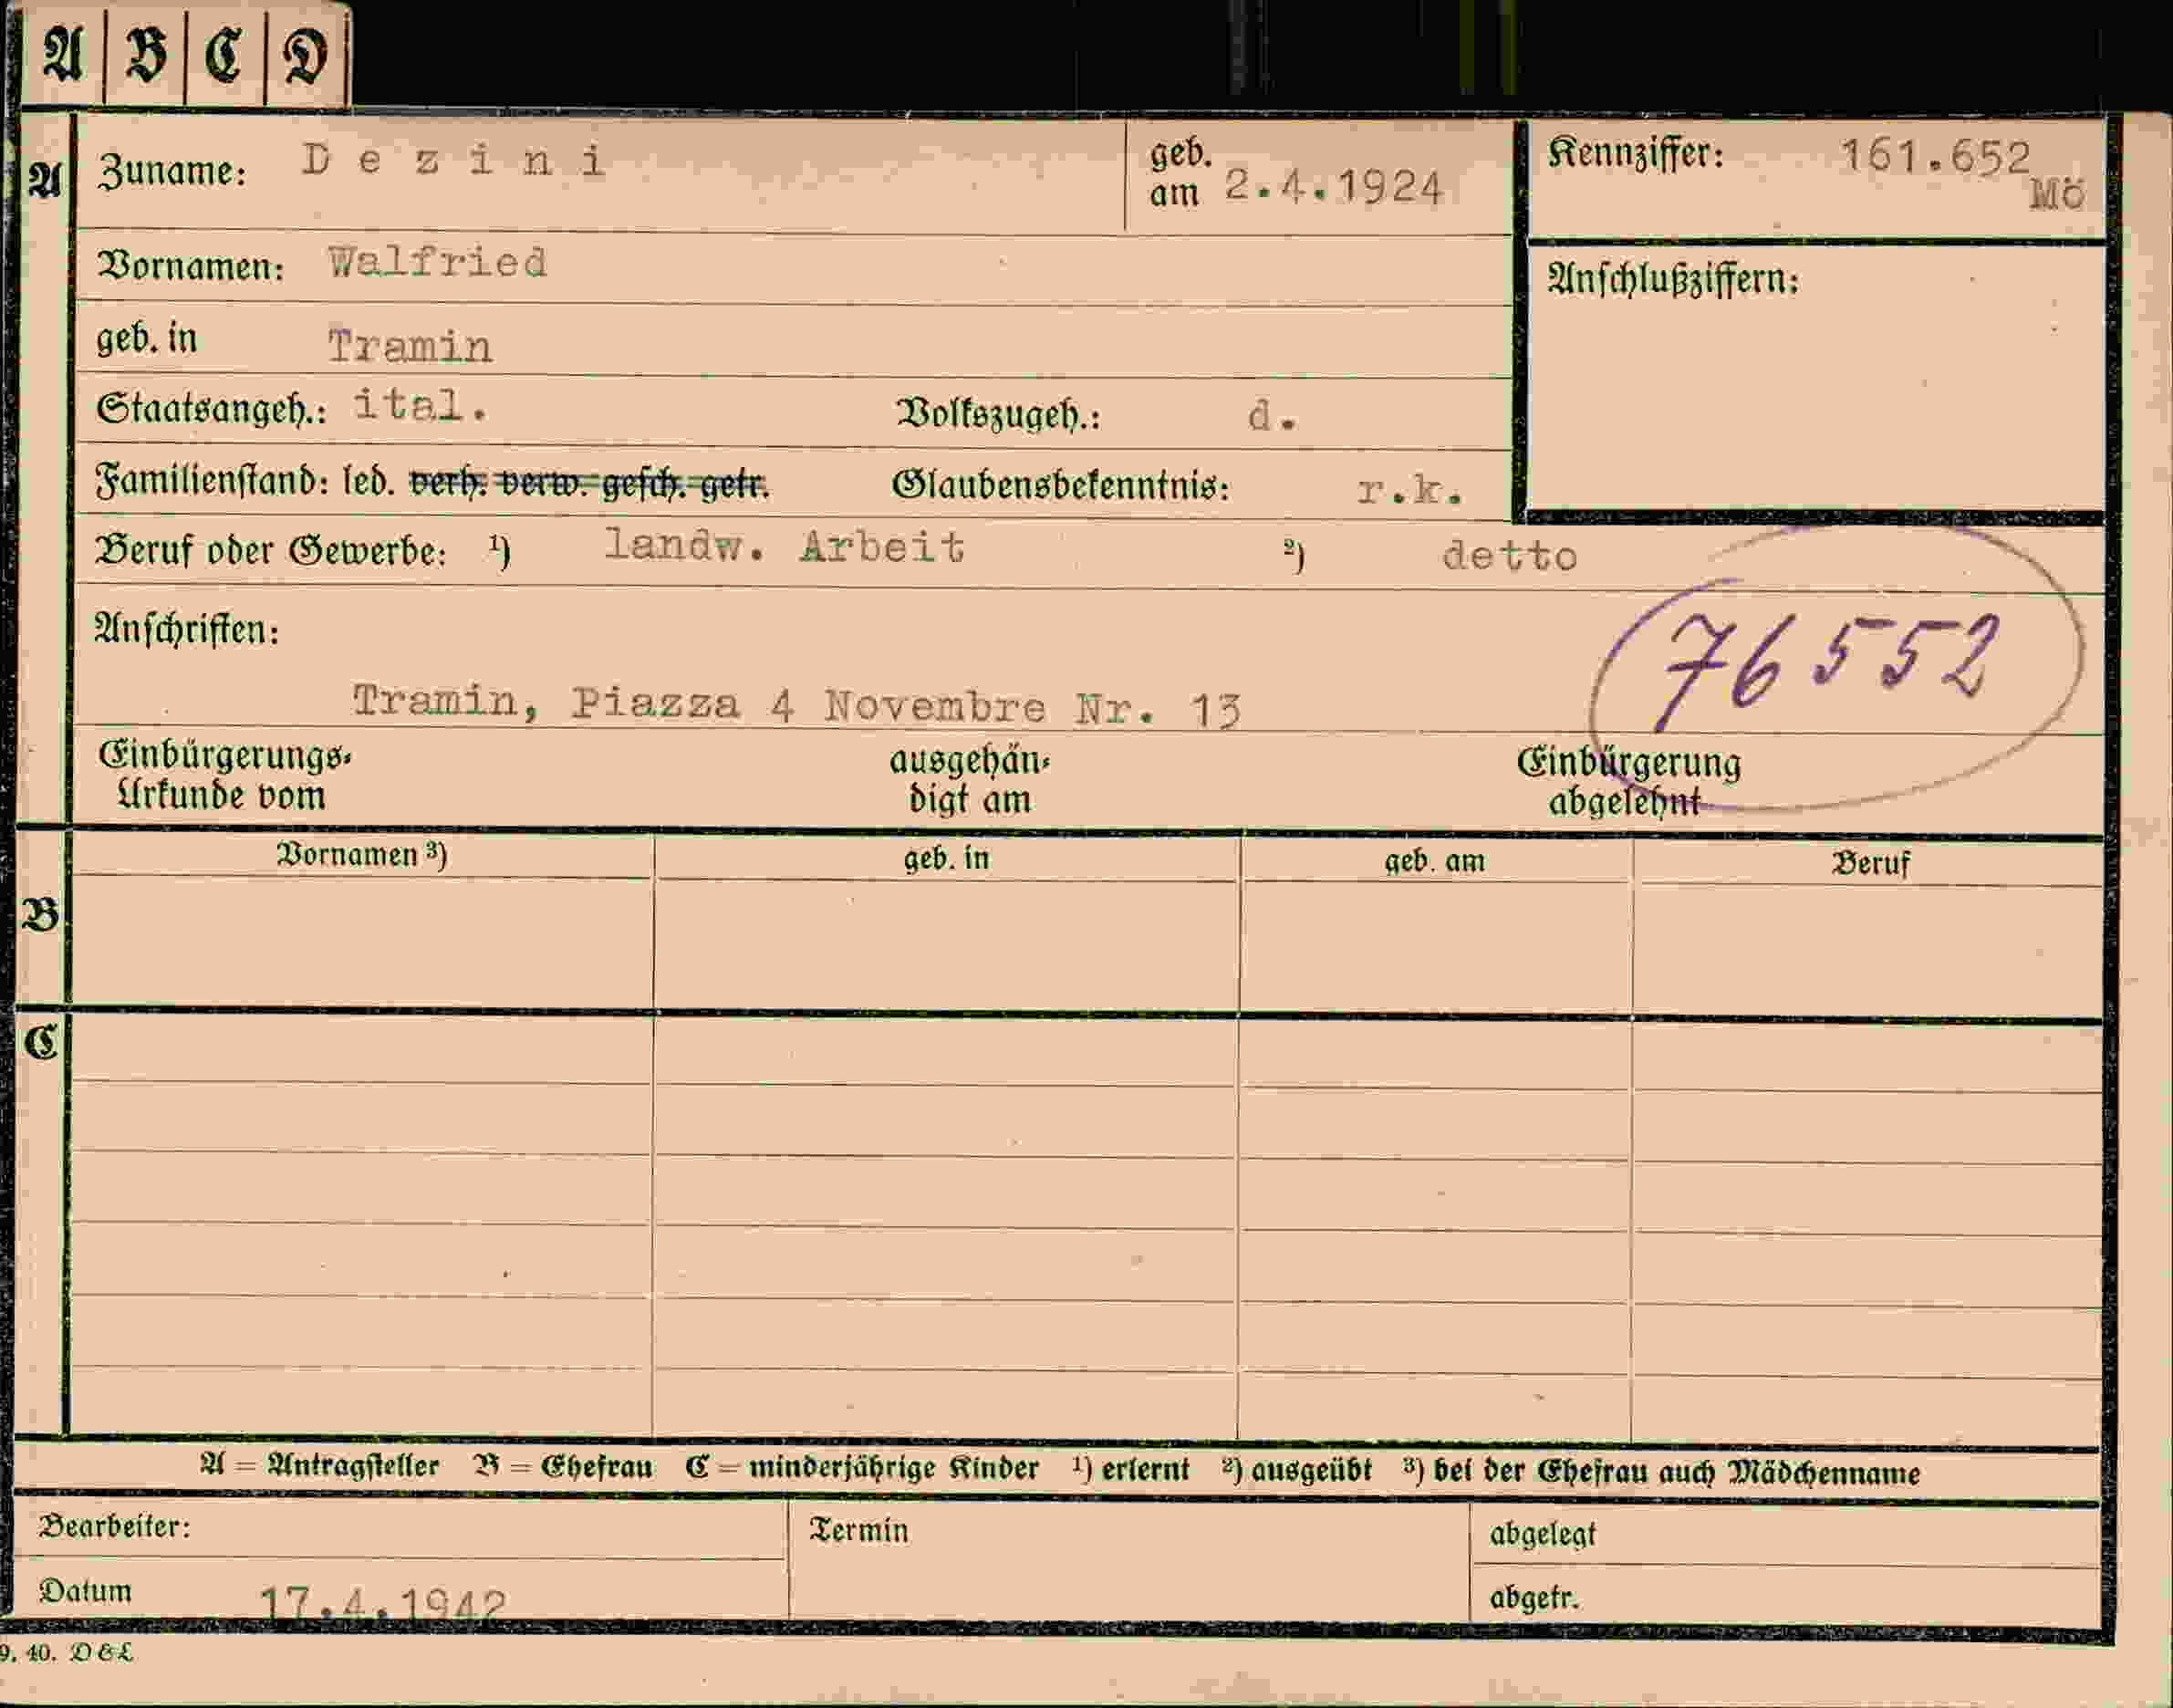 A B C D
A Zuname: Dezini geb. am 2.4.1924 Kennziffer: 161.652 Mö
Vornamen: Walfried Anschlußziffern:
geb. in Tramin
Staatsangeh.: ital. Volkszugeh.: d.
Familienstand: led. verh. verw. gesch. getr. Glaubensbekenntnis: r.k.
Beruf oder Gewerbe: ¹) landw. Arbeit ²) detto
Anschriften: 76552
Tramin, Piazza 4 Novembre Nr. 13
Einbürgerungs- ausgehän- Einbürgerung
Urkunde vom digt am abgelehnt
Vornamen ³) geb. in geb. am Beruf
B
C
A = Antragsteller B = Ehefrau C = minderjährige Kinder ¹) erlernt ²) ausgeübt ³) bei der Ehefrau auch Mädchenname
Bearbeiter: Termin abgelegt
Datum 17.4.1942 abgetr.
9. 40. D & L